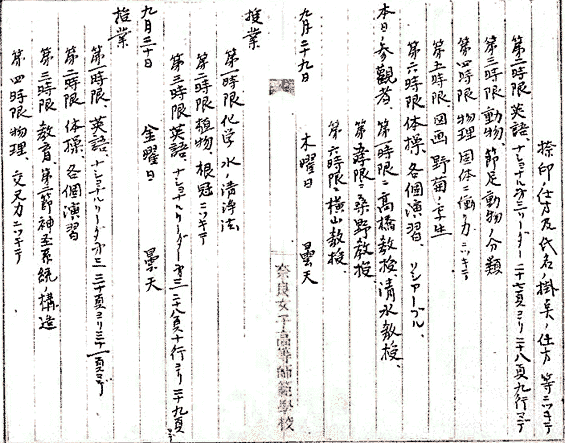 捺印ノ仕方及代名ノ掛矣ノ仕方 等ニツキテ
第二時限 英語、ナショナル第三リーダー 二十七頁ヨリ二十八頁九行マデ
第三時限 動物 節足動物ノ分類
第四時限 物理 固体ニ働ク力ニツキテ
第五時限 図画 野菊ノ写生
第六時限 体操、各個演習、
本日ノ参觀者、第 時限ニ髙橋教授、清水教授、
第五時限ニ桑野教授
第六時限ニ横山教授、
九月二十九日 木曜日 曇天
奈良女子高等師範學校
授業
第一時限 化学、水ノ清浄法
第二時限 植物、根冠ニツキテ
第三時限 英語、ナショナルリーダー第三 二十八頁十行ヨリ二十九頁マデ
九月三十日 金曜日 曇天
授業
第一時限 英語、ナショナルリーダー第三 三十頁ヨリ三十一頁マデ
第二時限 体操、各個演習
第三時限 教育、第二節神圣系統ノ構造
第四時限 物理、交叉力ニツキテ